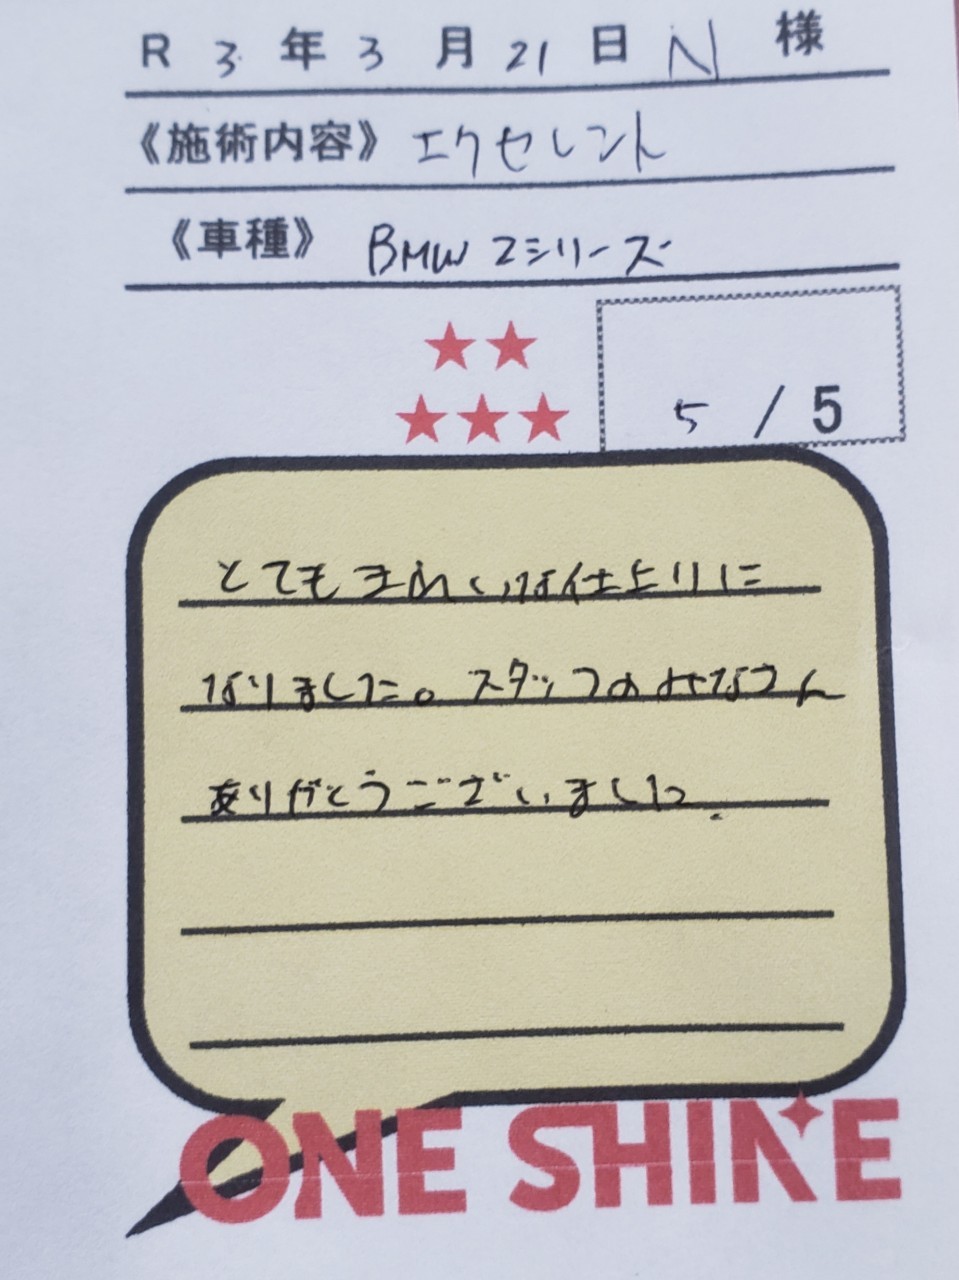 R 3年3月21日 N 様
《施術内容》エクセレント
《車種》BMW 2シリーズ
★★
★★★
5 / 5
とてもきれいな仕上りに
なりました。スタッフのみなさん
ありがとうございました.
ONE SHINE